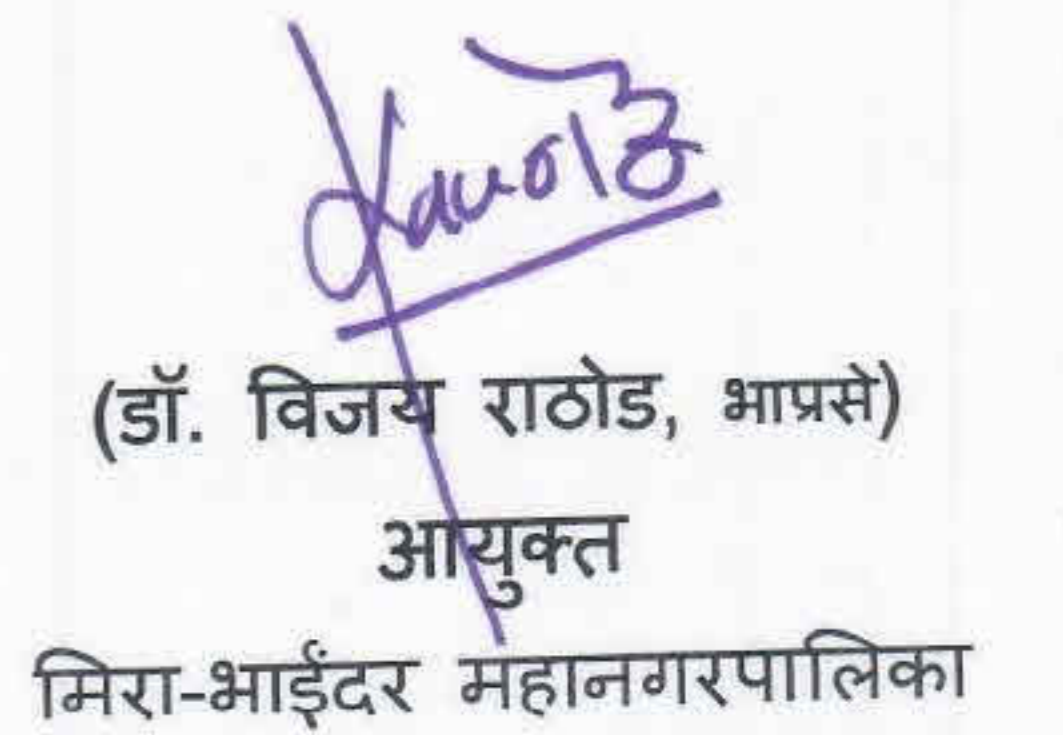 (डॉ. विजय राठोड, भाप्रसे)
आयुक्त
मिरा-भाईंदर महानगरपालिका